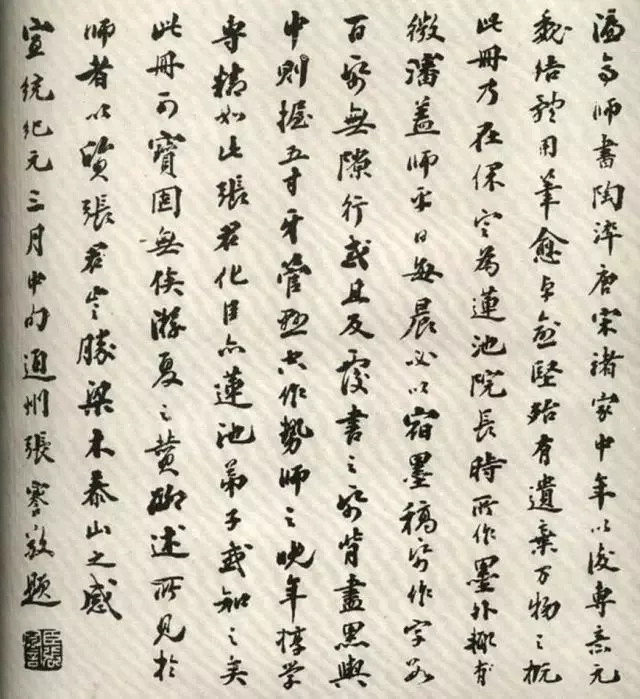 濂亭师书陶淬唐宋诸家中年以后专意元
魏结体用笔愈老愈坚殆有遗弃万物之概
此册乃在保定为莲池院长时所作墨外极有
微瀋盖师平日每晨必以宿墨稿纸作字数
百纸无隙行或且反覆书之纸背尽黑与
中则握五寸牙管悬空作势师之晚年悙学
专精如此张君化臣亦莲池弟子或知之矣
此册可宝固无俟游夏之赞聊述所见于
师者以质张君岂胜梁木泰山之感
宣统纪元三月中旬通州张謇敬题